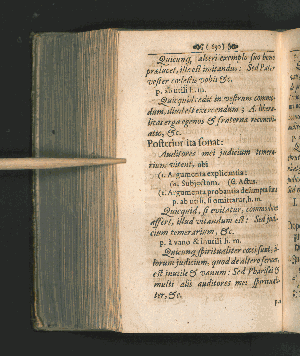 ( 630 )
Quicunq; alteri exemplo suo bene
prælucet, ille est imitandus: Sed Pater
vester cœlestis vobis &c.
p. ab utili h. m.
Quicquid cedit in vestrum commo-
dum, illud est exercendum: A libera-
litas erga egenos & fraterna reconcili-
atio, &c.
Posterior ita sonat:
Auditores mei judicium temera-
rium vitent, ubi
(1. Argumenta explicentia:
(α. Subjectum. (β. Actus.
(2. Argumenta probantia desumpta
p. ab utili, si omittatur, h. m.
Quicquid, si evitatur, commodum
affert, illud vitandum est: Sed judi-
cium temerarium, &c.
p. à vano & inutili h. m.
Quicunq; spiritualiter cæci sunt, il-
lorum judicium, quod de altero ferunt,
est inutile & vanum: Sed Pharisæi &
multi alii auditores mei spiritua-
liter, &c.